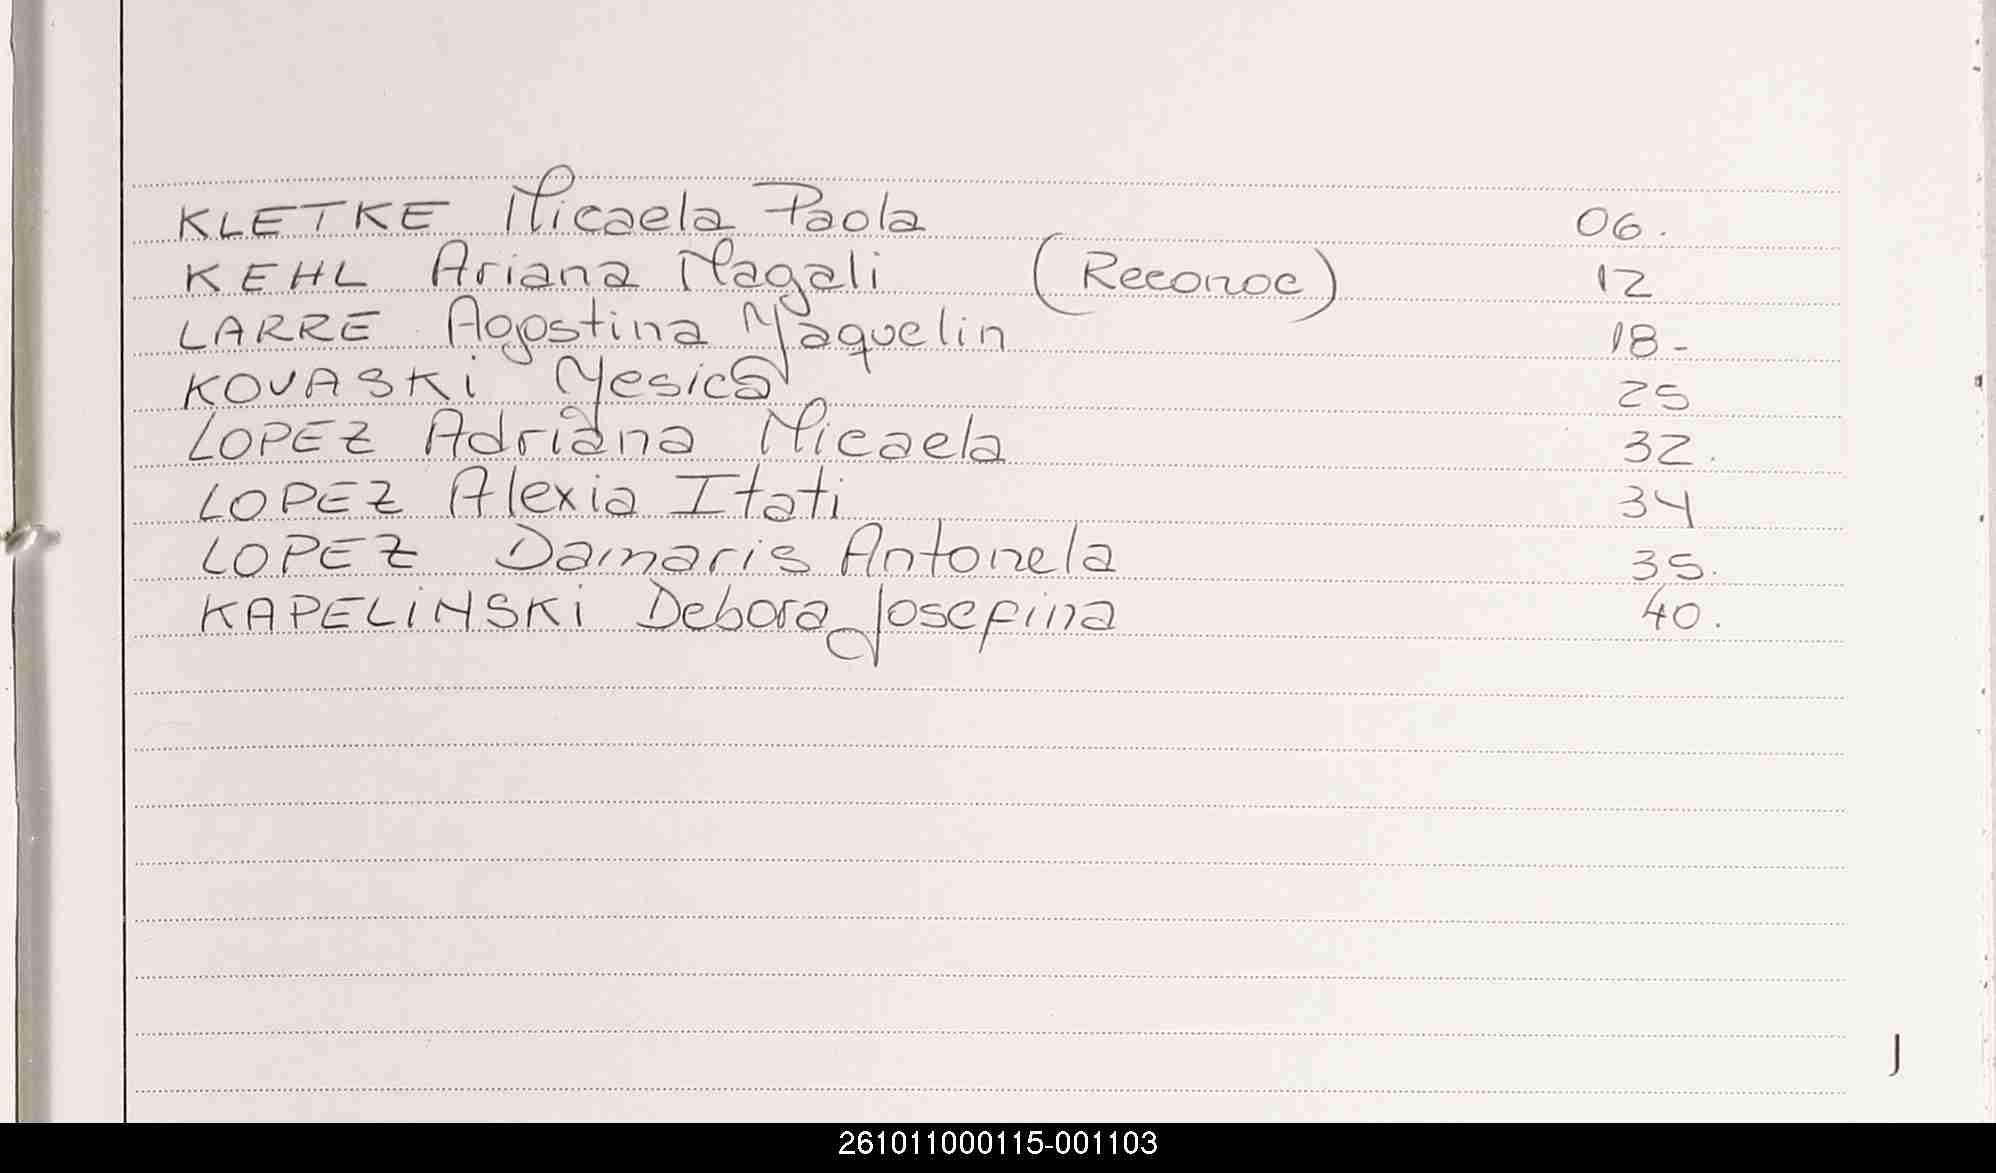 KLETKE Micaela Paola 06.
KEHL Ariana Magali (Reconoc) 12
LARRE Agostina Yaquelin 18-
KOVASKi Yesica 25
LOPEZ Adriana Micaela 32.
LOPEZ Alexia Itati 34
LOPEZ Damaris Antonela 35.
KAPELiNSKi Debora Josefina 40.
J
261011000115-001103